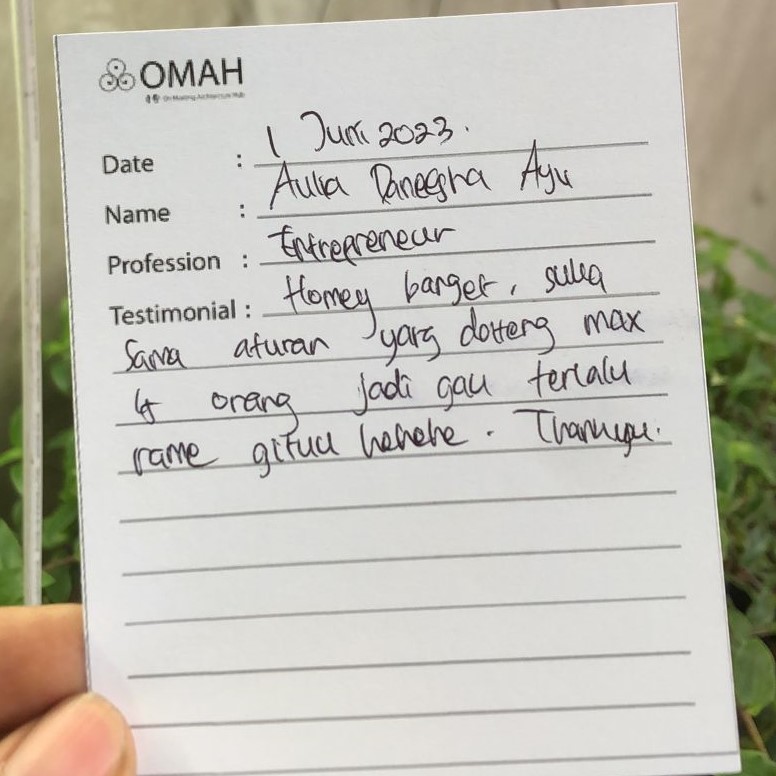 OMAH
On Meeting Architecture Hub
Date : 1 Juni 2023.
Name : Aulia Ayu
Profession : Entrepreneur
Testimonial : Homey banget, suka
sama aturan yang dateng max
4 orang jadi gau terlalu
rame gituu hehehe. Thankyu.